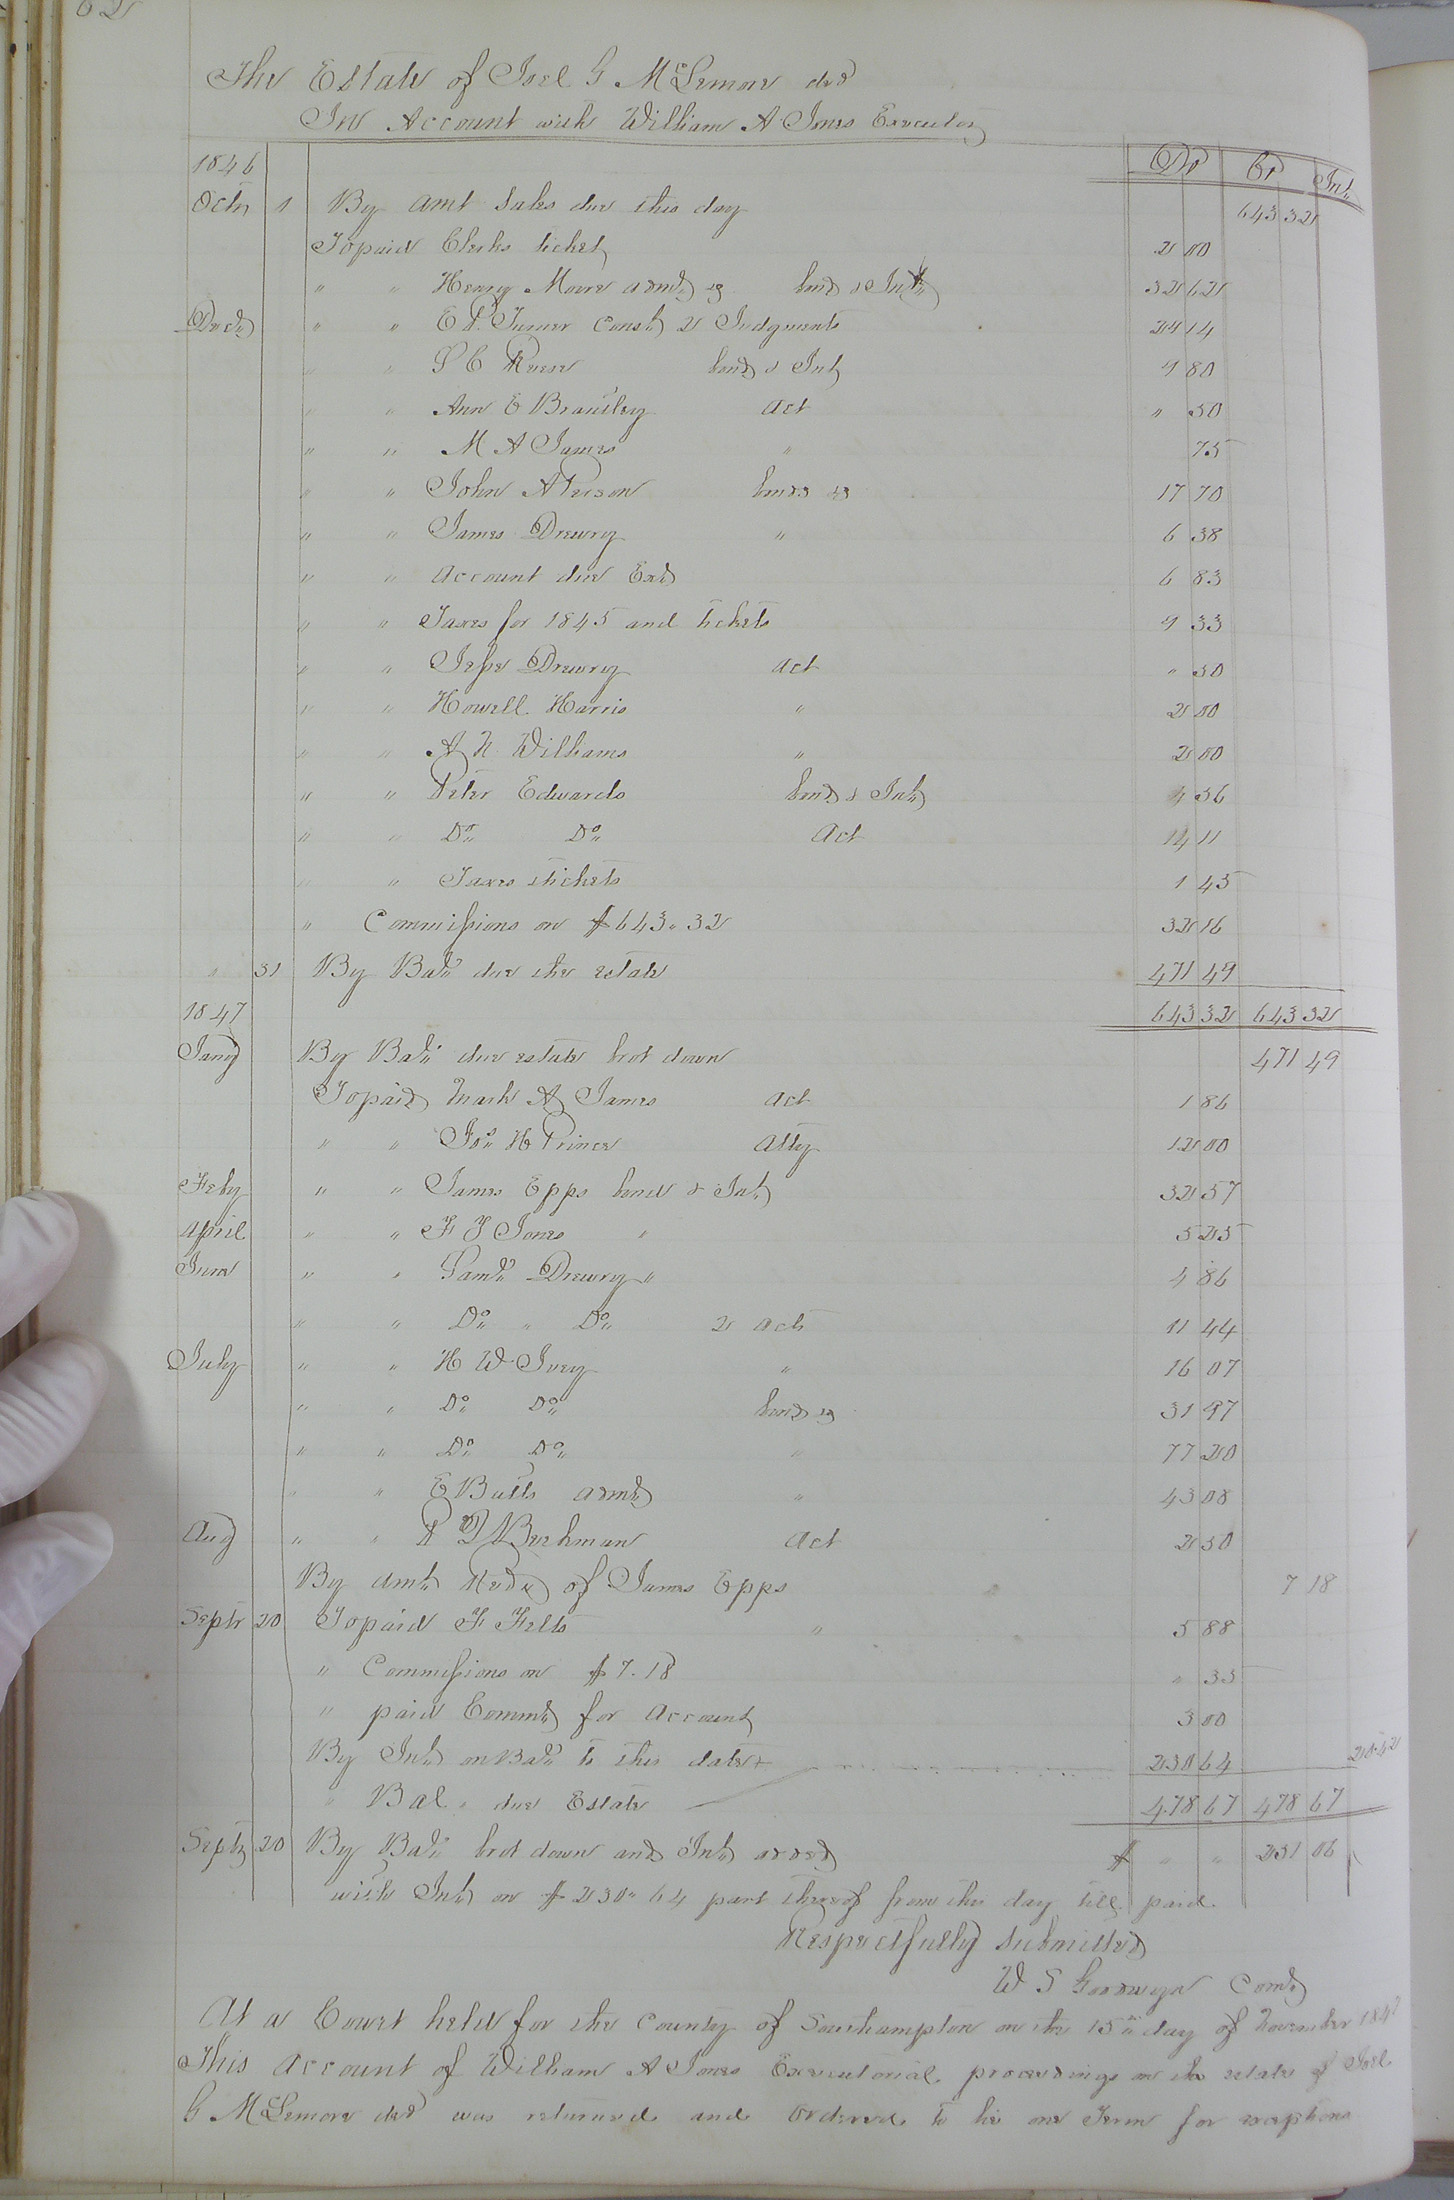 62
The Estate of Joel G McLemore decd
In Account with William A Jones Executor
1846 Dr Cr Int
Octr 1 By amt Sales due this day 643 32
To paid Clerks ticket 2 00
" " Henry Moore admr bond & Int 32 62
Decr " " E P Turner Const 2 Judgments 24 14
" " S C bond & Int 9 80
" " Ann E Brantley act " 50
" " M A James " 75
" " John A Person bonds 17 70
" " James Drewry " 6 38
" " account due Exr 6 83
" " Taxes for 1845 and tickets 9 33
" " Jesse Drewry act " 30
" " Howell Harris " 2 00
" " A N Williams " 2 00
" " Peter Edwards bond & Int 4 36
" " Do Do act 14 11
" " Taxes tickets 1 45
" Commissions on $643.32 32 16
" 31 By Bal due the estate 471 49
1847 643 32 643 32
Jany By Bal due estate brot down 471 49
To paid Mark A James act 1 86
" " Jos H Prince atty 12 00
Feby " " James Epps bond & Int 32 57
April " " F J Jones " 5 25
June " " Saml Drewry " 4 86
" " Do " Do 2 acts 11 44
July " " H W Ivey " 16 07
" " Do Do bond 31 97
" " Do Do " 77 20
" " E Butts admr " 43 08
Aug " " act 2 50
By amt Recd of James Epps 7 18
Septr 20 To paid F Felts " 5 88
" Commissions on $7.18 " 35
" paid Commr for account 3 00
By Int on Bal to this date 230 64 20.42
" Bal " due Estate 478 67 478 67
Septr 20 By Bal brot down and Int added $ " " 251 06
with Int on $230.64 part thereof from this day till paid
Respectfully submitted
W S Goodwyn Comr
At a Court held for the County of Southampton on the 15th day of November 1847
This account of William A Jones Executorial proceedings on the estate of Joel
G McLemore decd was returned and ordered to lie one Term for exceptions